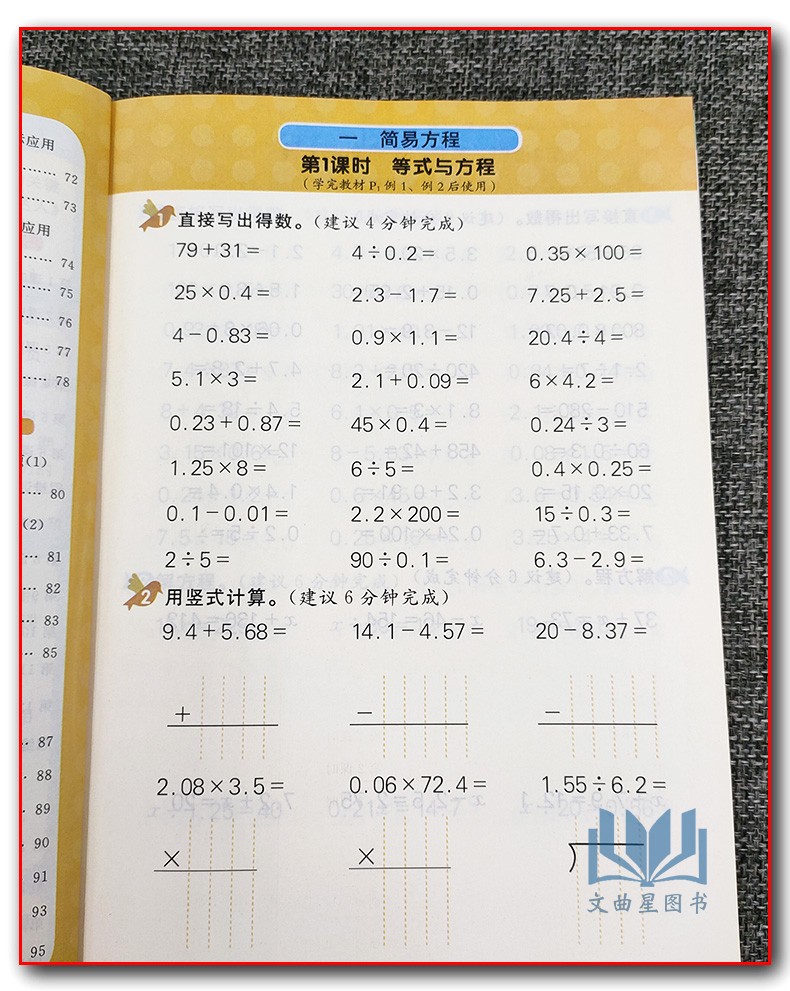 应用
72
73
应用
74
75
76
77
78
(1)
80
(2)
81
82
83
85
87
88
89
90
91
93
95
一 简易方程
第1课时 等式与方程
(学完教材P₁例1、例2后使用)
1 直接写出得数。(建议4分钟完成)
79+31= 4÷0.2= 0.35×100=
25×0.4= 2.3-1.7= 7.25+2.5=
4-0.83= 0.9×1.1= 20.4÷4=
5.1×3= 2.1+0.09= 6×4.2=
0.23+0.87= 45×0.4= 0.24÷3=
1.25×8= 6÷5= 0.4×0.25=
0.1-0.01= 2.2×200= 15÷0.3=
2÷5= 90÷0.1= 6.3-2.9=
2 用竖式计算。(建议6分钟完成)
9.4+5.68= 14.1-4.57= 20-8.37=
+ - -
2.08×3.5= 0.06×72.4= 1.55÷6.2=
× ×
文曲星图书